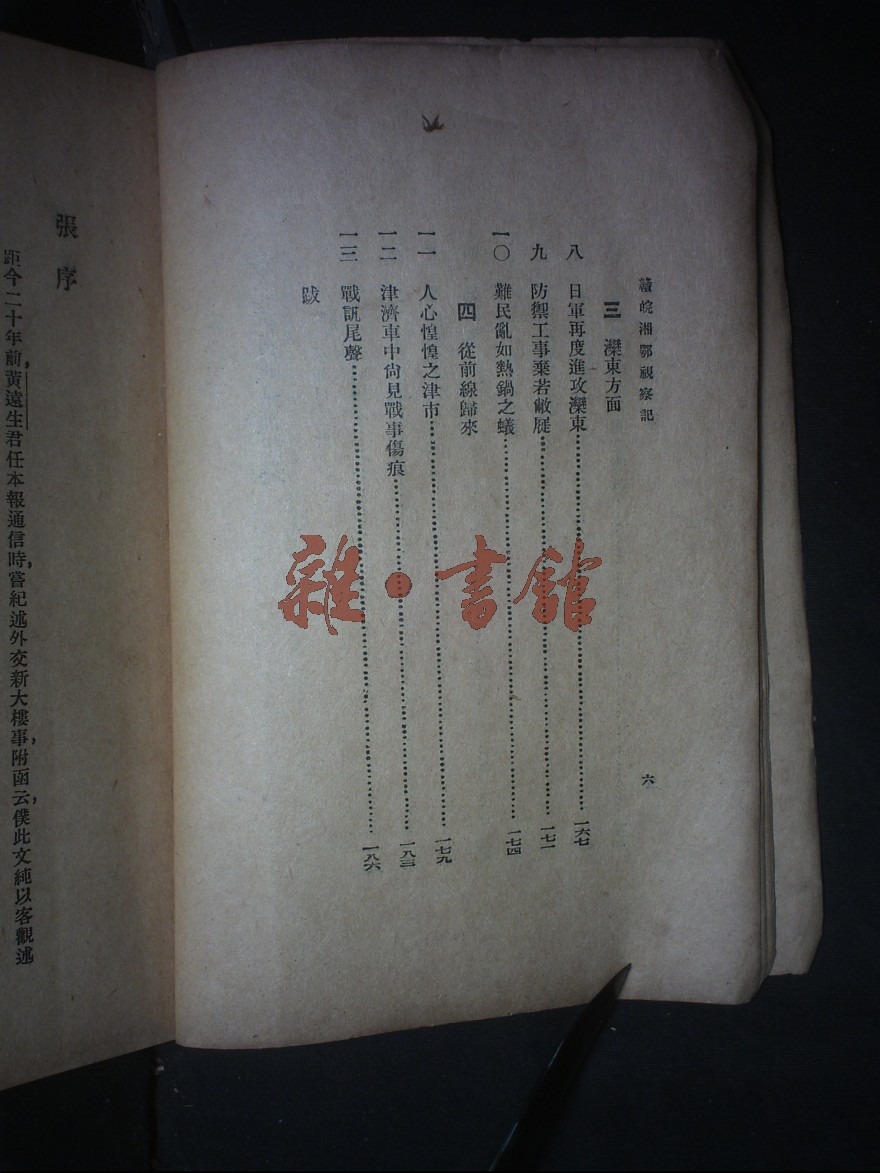 贛皖湘鄂視察記
六
三　灤東方面
八　日軍再度進攻灤東……一六七
九　防禦工事棄若敝屣……一七一
一〇　難民亂如熱鍋之蟻……一七四
四　從前線歸來
一一　人心惶惶之津市……一七九
一二　津濟車中尙見戰事傷痕……一八三
一三　戰訊尾聲……一八六
跋
張序
距今二十年前，黃遠生君任本報通信時，嘗紀述外交新大樓事，附函云，僕此文純以客觀述
雜·書館